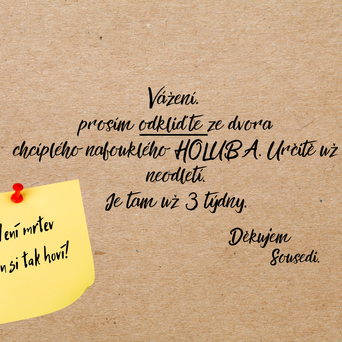 Vážení.
prosím odkliďte ze dvora
chciplého nafouklého HOLUBA. Určitě už
neodletí.
Je tam už 3 týdny.
Děkujem
Sousedi.
ení mrtev
n si tak hoví!